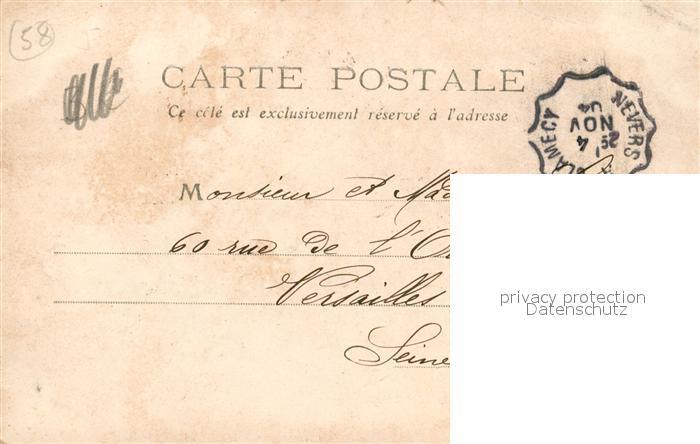 58
CARTE POSTALE
Ce côté est exclusivement réservé à l'adresse
NEVERS
CLAMECY
4
NOV
04
Monsieur et Mad
60 rue de l'O
Versailles
Seine
privacy protection
Datenschutz